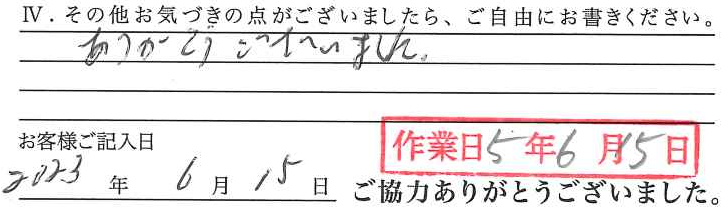 Ⅳ．その他お気づきの点がございましたら、ご自由にお書きください。
ありがとうございました。
お客様ご記入日
作業日5年6月15日
2023年6月15日
ご協力ありがとうございました。